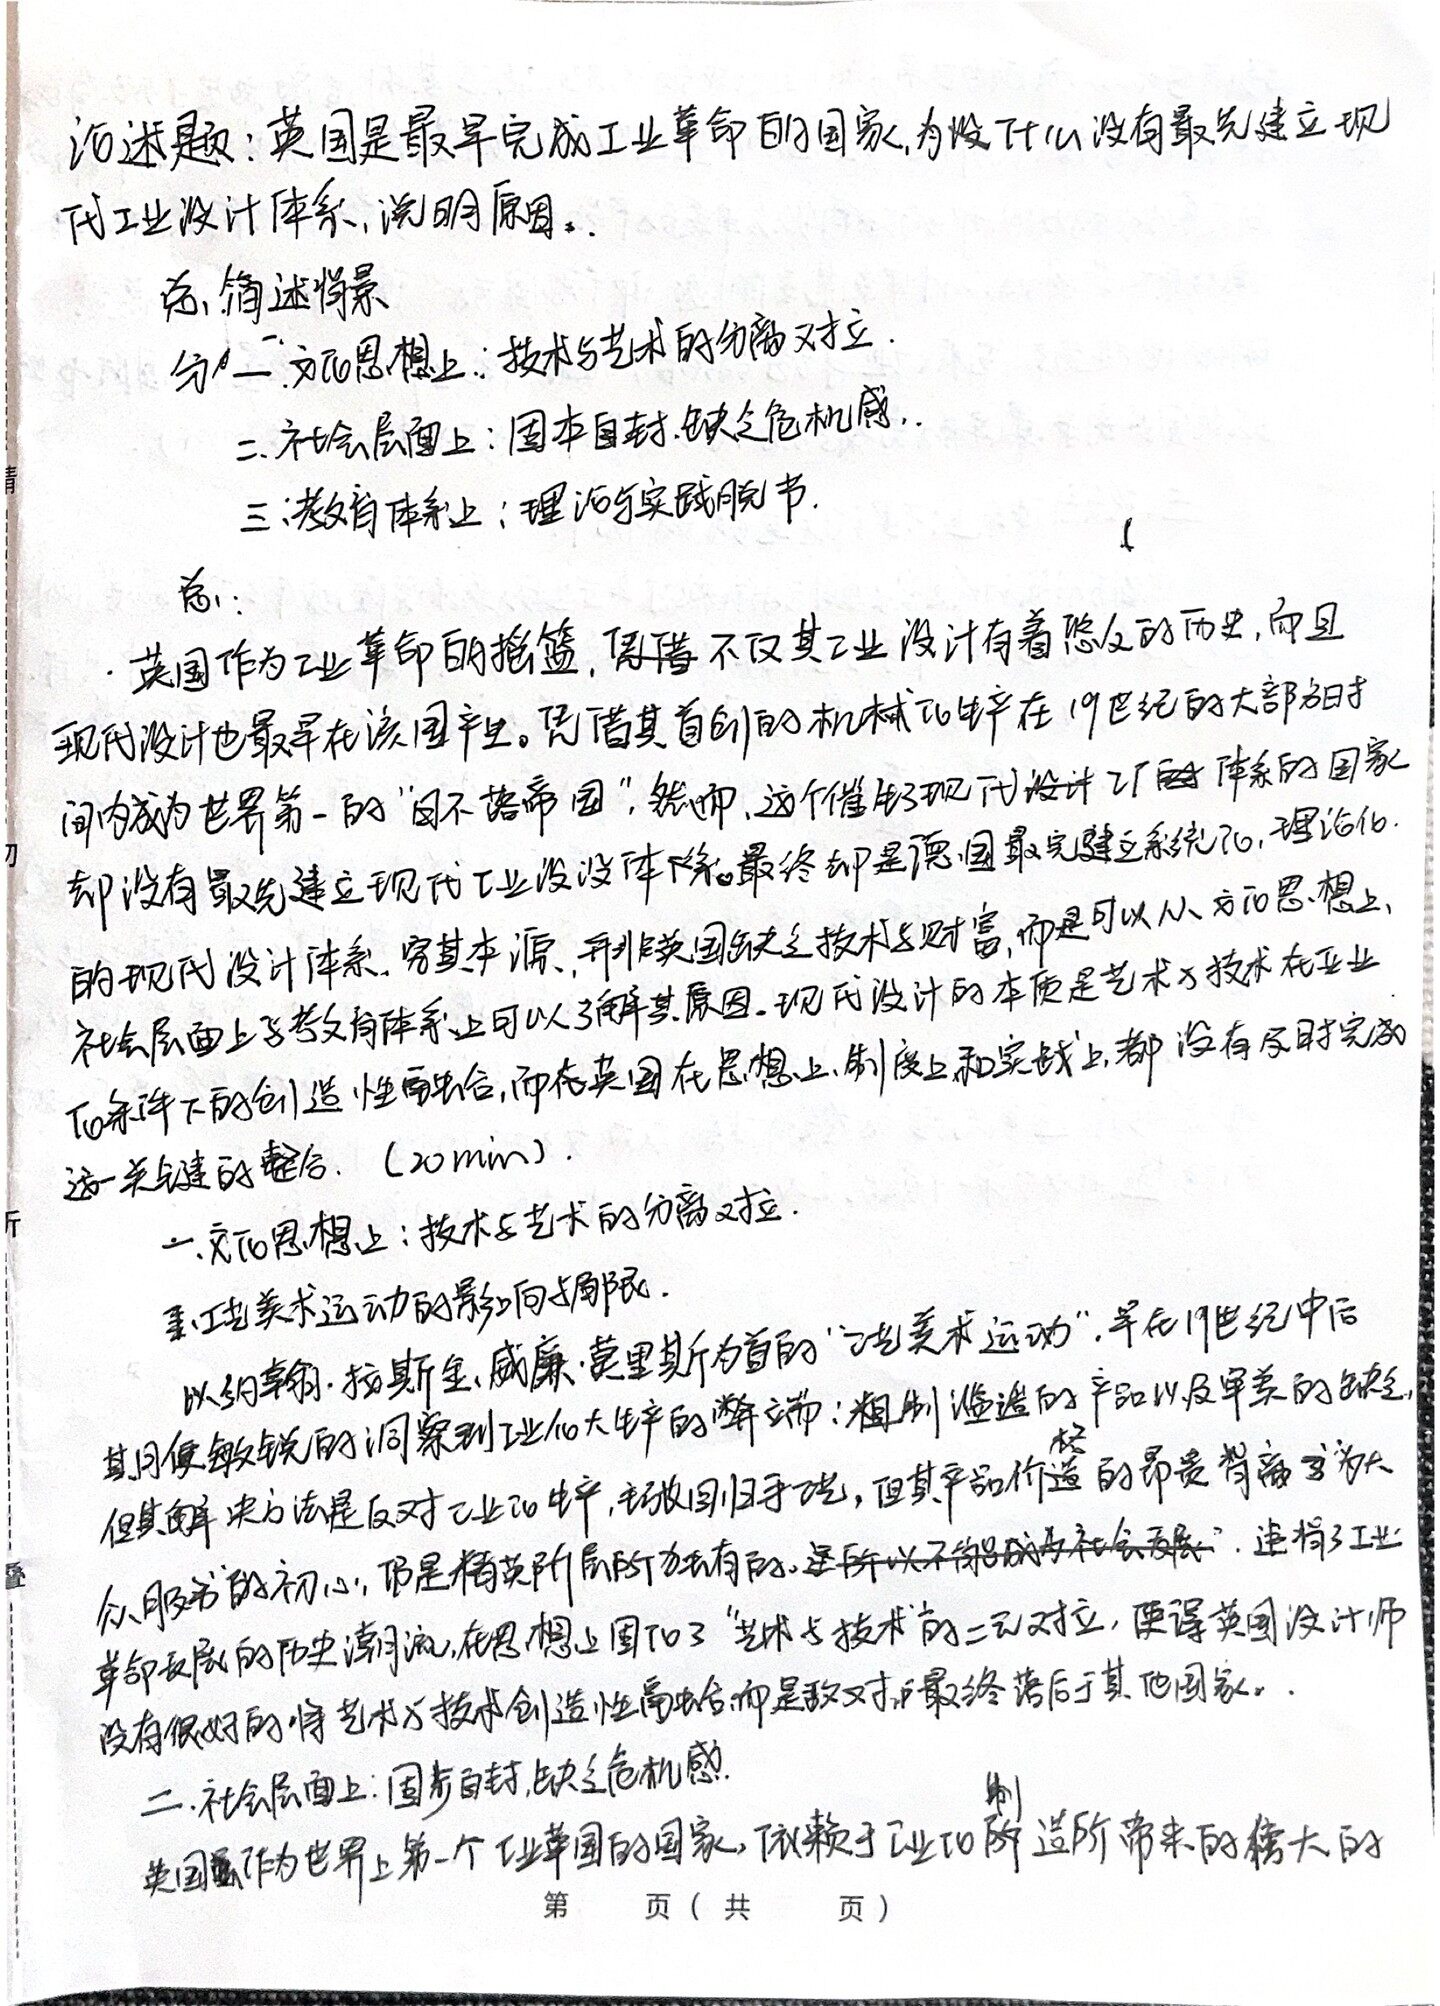 论述题：英国是最早完成工业革命的国家，为没什么没有最先建立现
代工业设计体系，说明原因。
总、简述背景
分 一、文化思想上：技术与艺术的分离对立.
二、社会层面上：固本自封.缺乏危机感.
三、教育体系上：理论与实践脱节.
总：
英国作为工业革命的摇篮，不仅其工业设计有着悠久的历史，而且
现代设计也最早在该国产生。凭借其首创的机械化生产在19世纪的大部分时
间内成为世界第一的“日不落帝国”，然而，这个催生了现代工厂体系的国家
却没有最先建立现代工业设没体系。最终却是德国最先建立系统化，理论化.
的现代设计体系，穷其本源，并非英国缺乏技术与财富，而是可以从、文化思想上、
社会层面上与教育体系上可以了解其原因。现代设计的本质是艺术与技术在工业
化条件下的创造性融合，而在英国在思想上、制度上和实践上，都没有及时完成
这一关键的整合. (20min).
一、文化思想上：技术与艺术的分离对立.
工艺美术运动的影响与局限.
以约翰·拉斯金、威廉·莫里斯为首的“工艺美术运动”，早在19世纪中后
其月便敏锐的洞察到工业化大生产的弊端：粗制滥造的产品以及审美的缺乏，
但其解决方法是反对工业化生产，回归手工艺，但其产品价格的昂贵背离了为大
众服务的初心，仍是精英阶层所有的。违背了工业
革命发展的历史潮流，在思想上固化了“艺术与技术”的二元对立，使得英国设计师
没有很好的将艺术与技术创造性融合而是敌对，最终落后于其他国家。
二、社会层面上：固步自封，缺乏危机感.
英国作为世界上第一个工业革国的国家，依赖于工业化制造所带来的巨大的
第 页（共 页）
请
切
折
叠